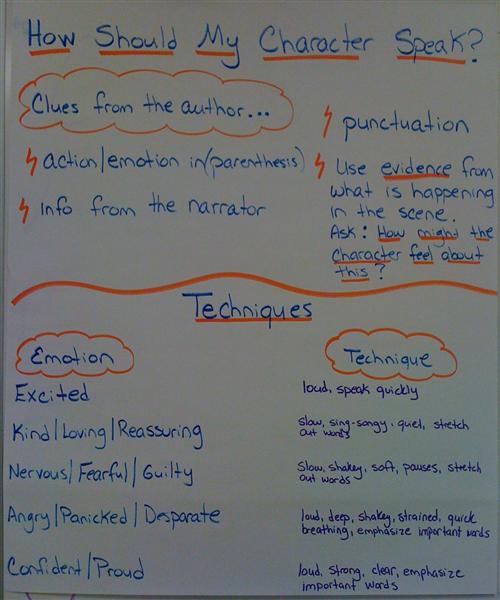 How Should My Character Speak?
Clues from the author...
action/emotion in (parenthesis)
info from the narrator
punctuation
Use evidence from
what is happening
in the scene.
Ask: How might the
character feel about
this?
Techniques
Emotion
Technique
Excited
loud, speak quickly
Kind/Loving/Reassuring
slow, sing-songy, quiet, stretch
out words
Nervous/Fearful/Guilty
Slow, shakey, soft, pauses, stretch
out words
Angry/Panicked/Desparate
loud, deep, shakey, strained, quick
breathing, emphasize important words
Confident/Proud
loud, strong, clear, emphasize
important words